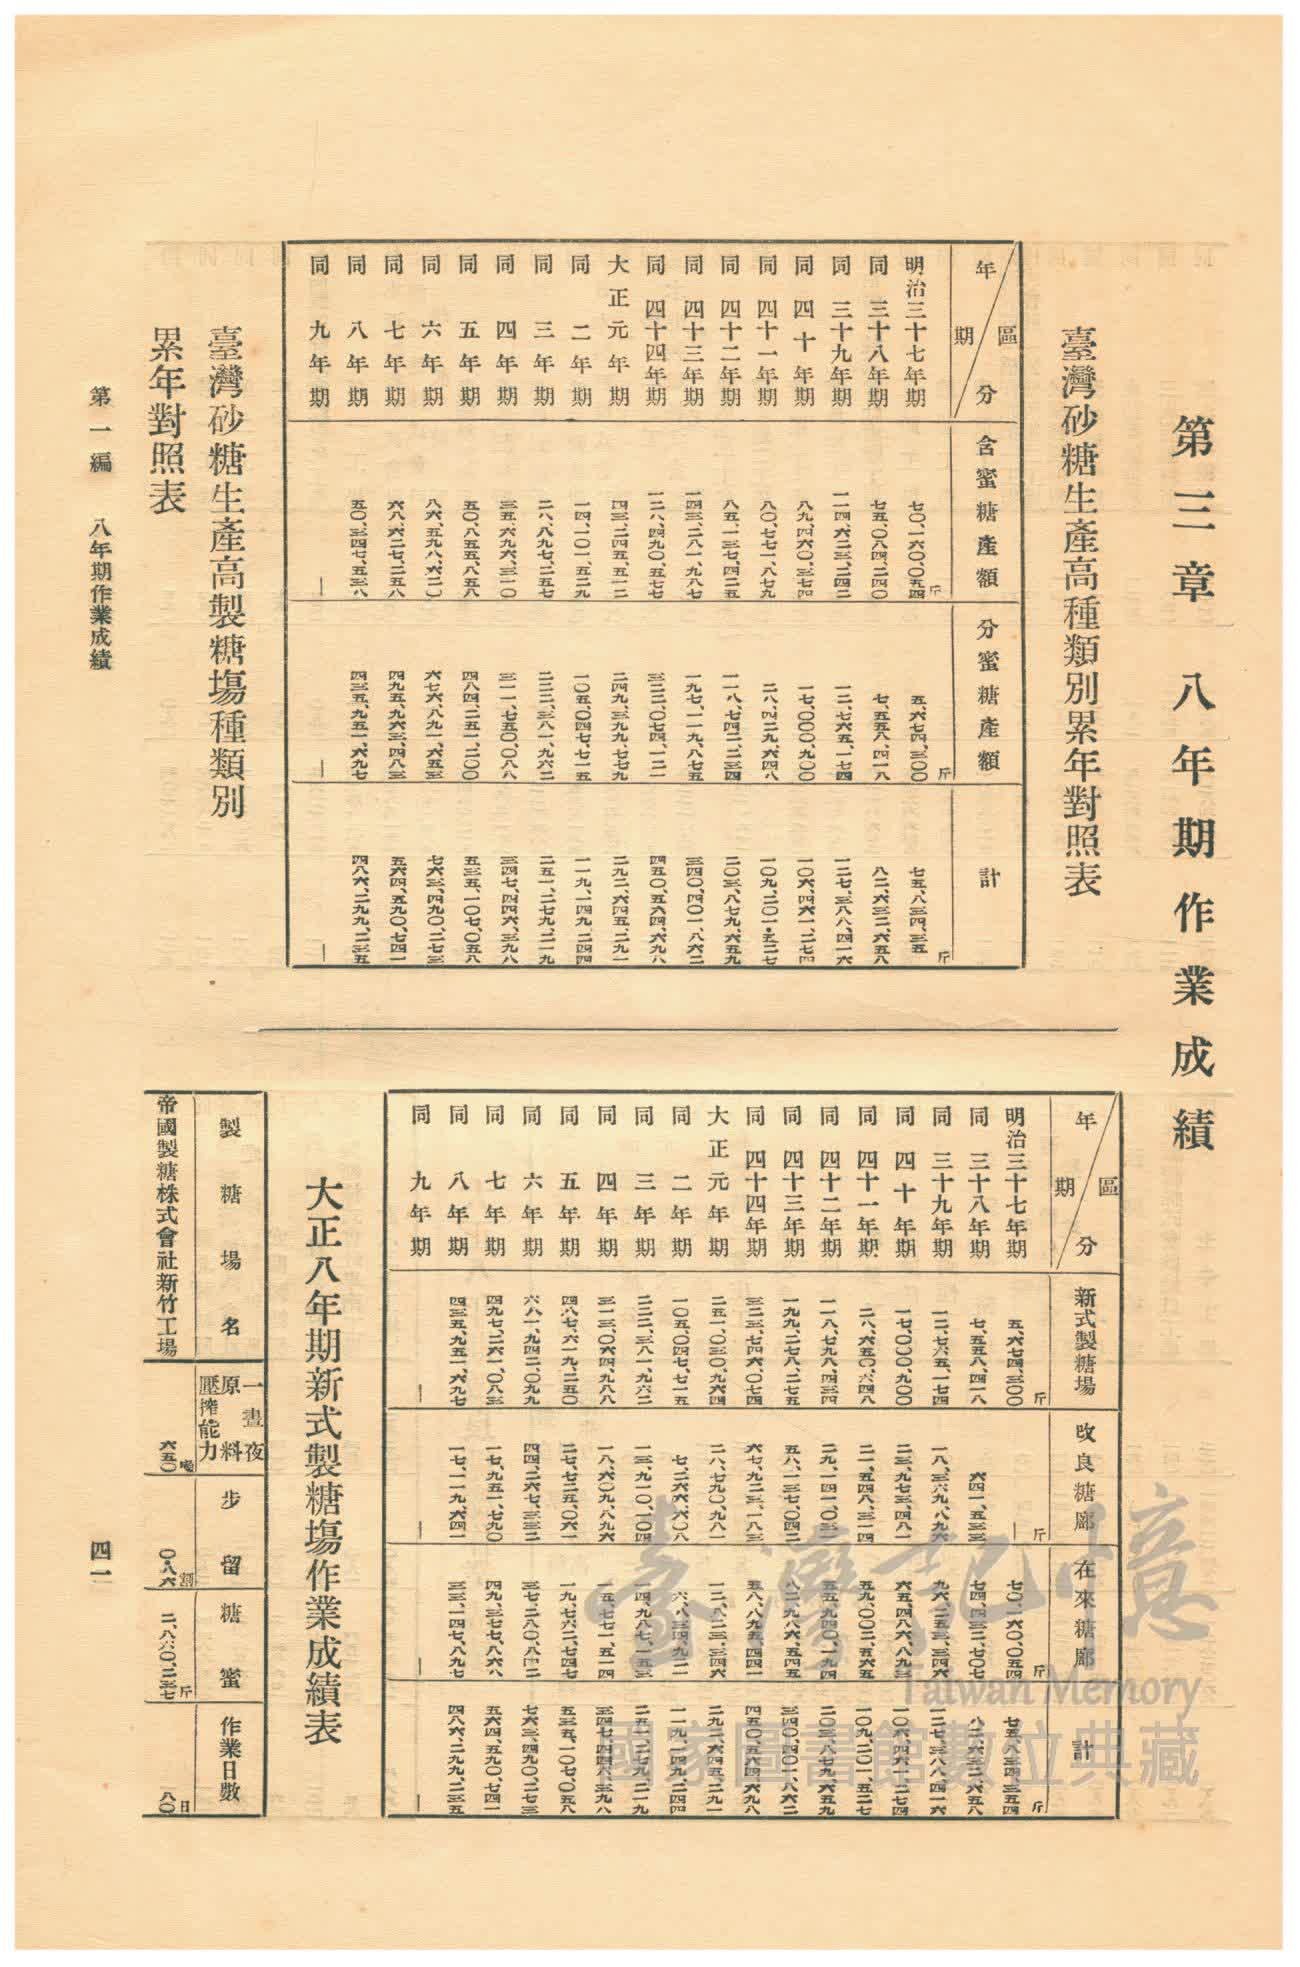 第三章　八年期作業成績
臺灣砂糖生產高種類別累年對照表
年期　區分　含蜜糖產額　分蜜糖產額　計
明治三十七年期　七〇、一六〇、〇五四斤　五、六七四、三〇〇斤　七五、八三四、三五斤
同　三十八年期　七五、〇八四、二四〇　七、五五八、四一八　八二、六三二、六五八
同　三十九年期　一一四、六二三、二四二　一二、七六五、一七四　一二七、三八八、四一六
同　四十年期　八九、四六〇、三七四　一七、〇〇〇、九〇〇　一〇六、四六一、二七四
同　四十一年期　八〇、七七一、八七九　二八、四二九、六四八　一〇九、二〇一、五二七
同　四十二年期　八五、一三七、四二五　一一八、七四二、二三四　二〇三、八七九、六五九
同　四十三年期　一四三、二八一、九八七　一九七、一一九、八七五　三四〇、四〇一、八六二
同　四十四年期　一二八、四九〇、五七七　三二二、〇七四、一二一　四五〇、五六四、六九八
大正元年期　四三、二四五、五一二　二四九、三九九、七七九　二九二、六四五、二九一
同　二年期　一四、一〇一、五二九　一〇五、〇四七、七一五　一一九、一四九、二四四
同　三年期　二八、八九七、二五七　二二二、三八一、九六二　二五一、二七九、二一九
同　四年期　三五、六九六、三一〇　三一一、七五〇、〇八八　三四七、四四六、三九八
同　五年期　五〇、八五五、八五八　四八四、二五一、二〇〇　五三五、一〇七、〇五八
同　六年期　八六、五九八、六二〇　六七六、八九一、六五三　七六三、四九〇、二七三
同　七年期　六八、六二七、二五八　四九五、九六三、四八三　五六四、五九〇、七四一
同　八年期　五〇、三四七、五三八　四三五、九五一、六九七　四八六、二九九、二三五
同　九年期　―　―　―
臺灣砂糖生產高製糖場種類別
累年對照表
年期　區分　新式製糖場　改良糖廍　在來糖廍　計
明治三十七年期　五、六七四、三〇〇斤　―斤　七〇、一六〇、〇五四斤　七五、八三四、三五四斤
同　三十八年期　七、五五八、四一八　六四一、五三三　七四、四三二、七〇七　八二、六三二、六五八
同　三十九年期　一二、七六五、一七四　一八、三六九、八九六　九六、二五三、三四六　一二七、三八八、四一六
同　四十年期　一七、〇〇〇、九〇〇　二三、九七三、四八一　六五、四八六、八九三　一〇六、四六一、二七四
同　四十一年期　二八、六五〇、六四八　二一、五四八、三一四　五九、〇〇二、五六五　一〇九、二〇一、五二七
同　四十二年期　一一八、七九八、四三四　二九、一四一、〇三一　五五、九四〇、一九四　二〇三、八七九、六五九
同　四十三年期　一九九、二七八、二七五　五八、一三七、〇四二　八二、九八六、五四五　三四〇、四〇一、八六二
同　四十四年期　三二三、七四六、〇七四　六七、九二三、一八三　五八、八九五、四四一　四五〇、五六四、六九八
大正元年期　二五一、〇三〇、九六四　二八、七九〇、九八一　一二、八二三、三四六　二九二、六四五、二九一
同　二年期　一〇五、〇四七、七一五　七、二六六、六〇八　六、八三四、九二一　一一九、一四九、二四四
同　三年期　二二二、三八一、九六二　一三、九一〇、一〇四　一四、九八七、一五三　二五一、二七九、二一九
同　四年期　三一三、〇六四、九八八　一八、六〇九、八九六　一五、七七一、五一四　三四七、四四六、三九八
同　五年期　四八七、六一九、二五〇　二七、七二五、〇六一　一九、七六二、七四七　五三五、一〇七、〇五八
同　六年期　六八一、九四二、〇九九　四四、二六七、三三二　三七、二八〇、八四二　七六三、四九〇、二七三
同　七年期　四九七、二六一、〇八三　一七、九五一、七九〇　四九、三七七、八六八　五六四、五九〇、七四一
同　八年期　四三五、九五一、六九七　一七、一一九、六四一　三三、一四七、八九七　四八六、二九九、二三五
同　九年期　―　―
大正八年期新式製糖場作業成績表
製糖場名　一晝夜原料壓搾能力　步留　糖蜜　作業日數
帝國製糖株式會社新竹工場　六五〇噸　〇・八六割　二、八六〇、三三七斤　八〇日
第一編　八年期作業成績
四一
臺灣記憶
Taiwan Memory
國家圖書館數位典藏